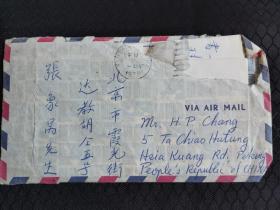 VIA AIR MAIL
北京市霞光街
达教胡仝五号
張象昺先生
Mr. H. P. Chang
5 Ta Chiao Hutung
Hsia Kuang Rd, Peking
People's Republic of China